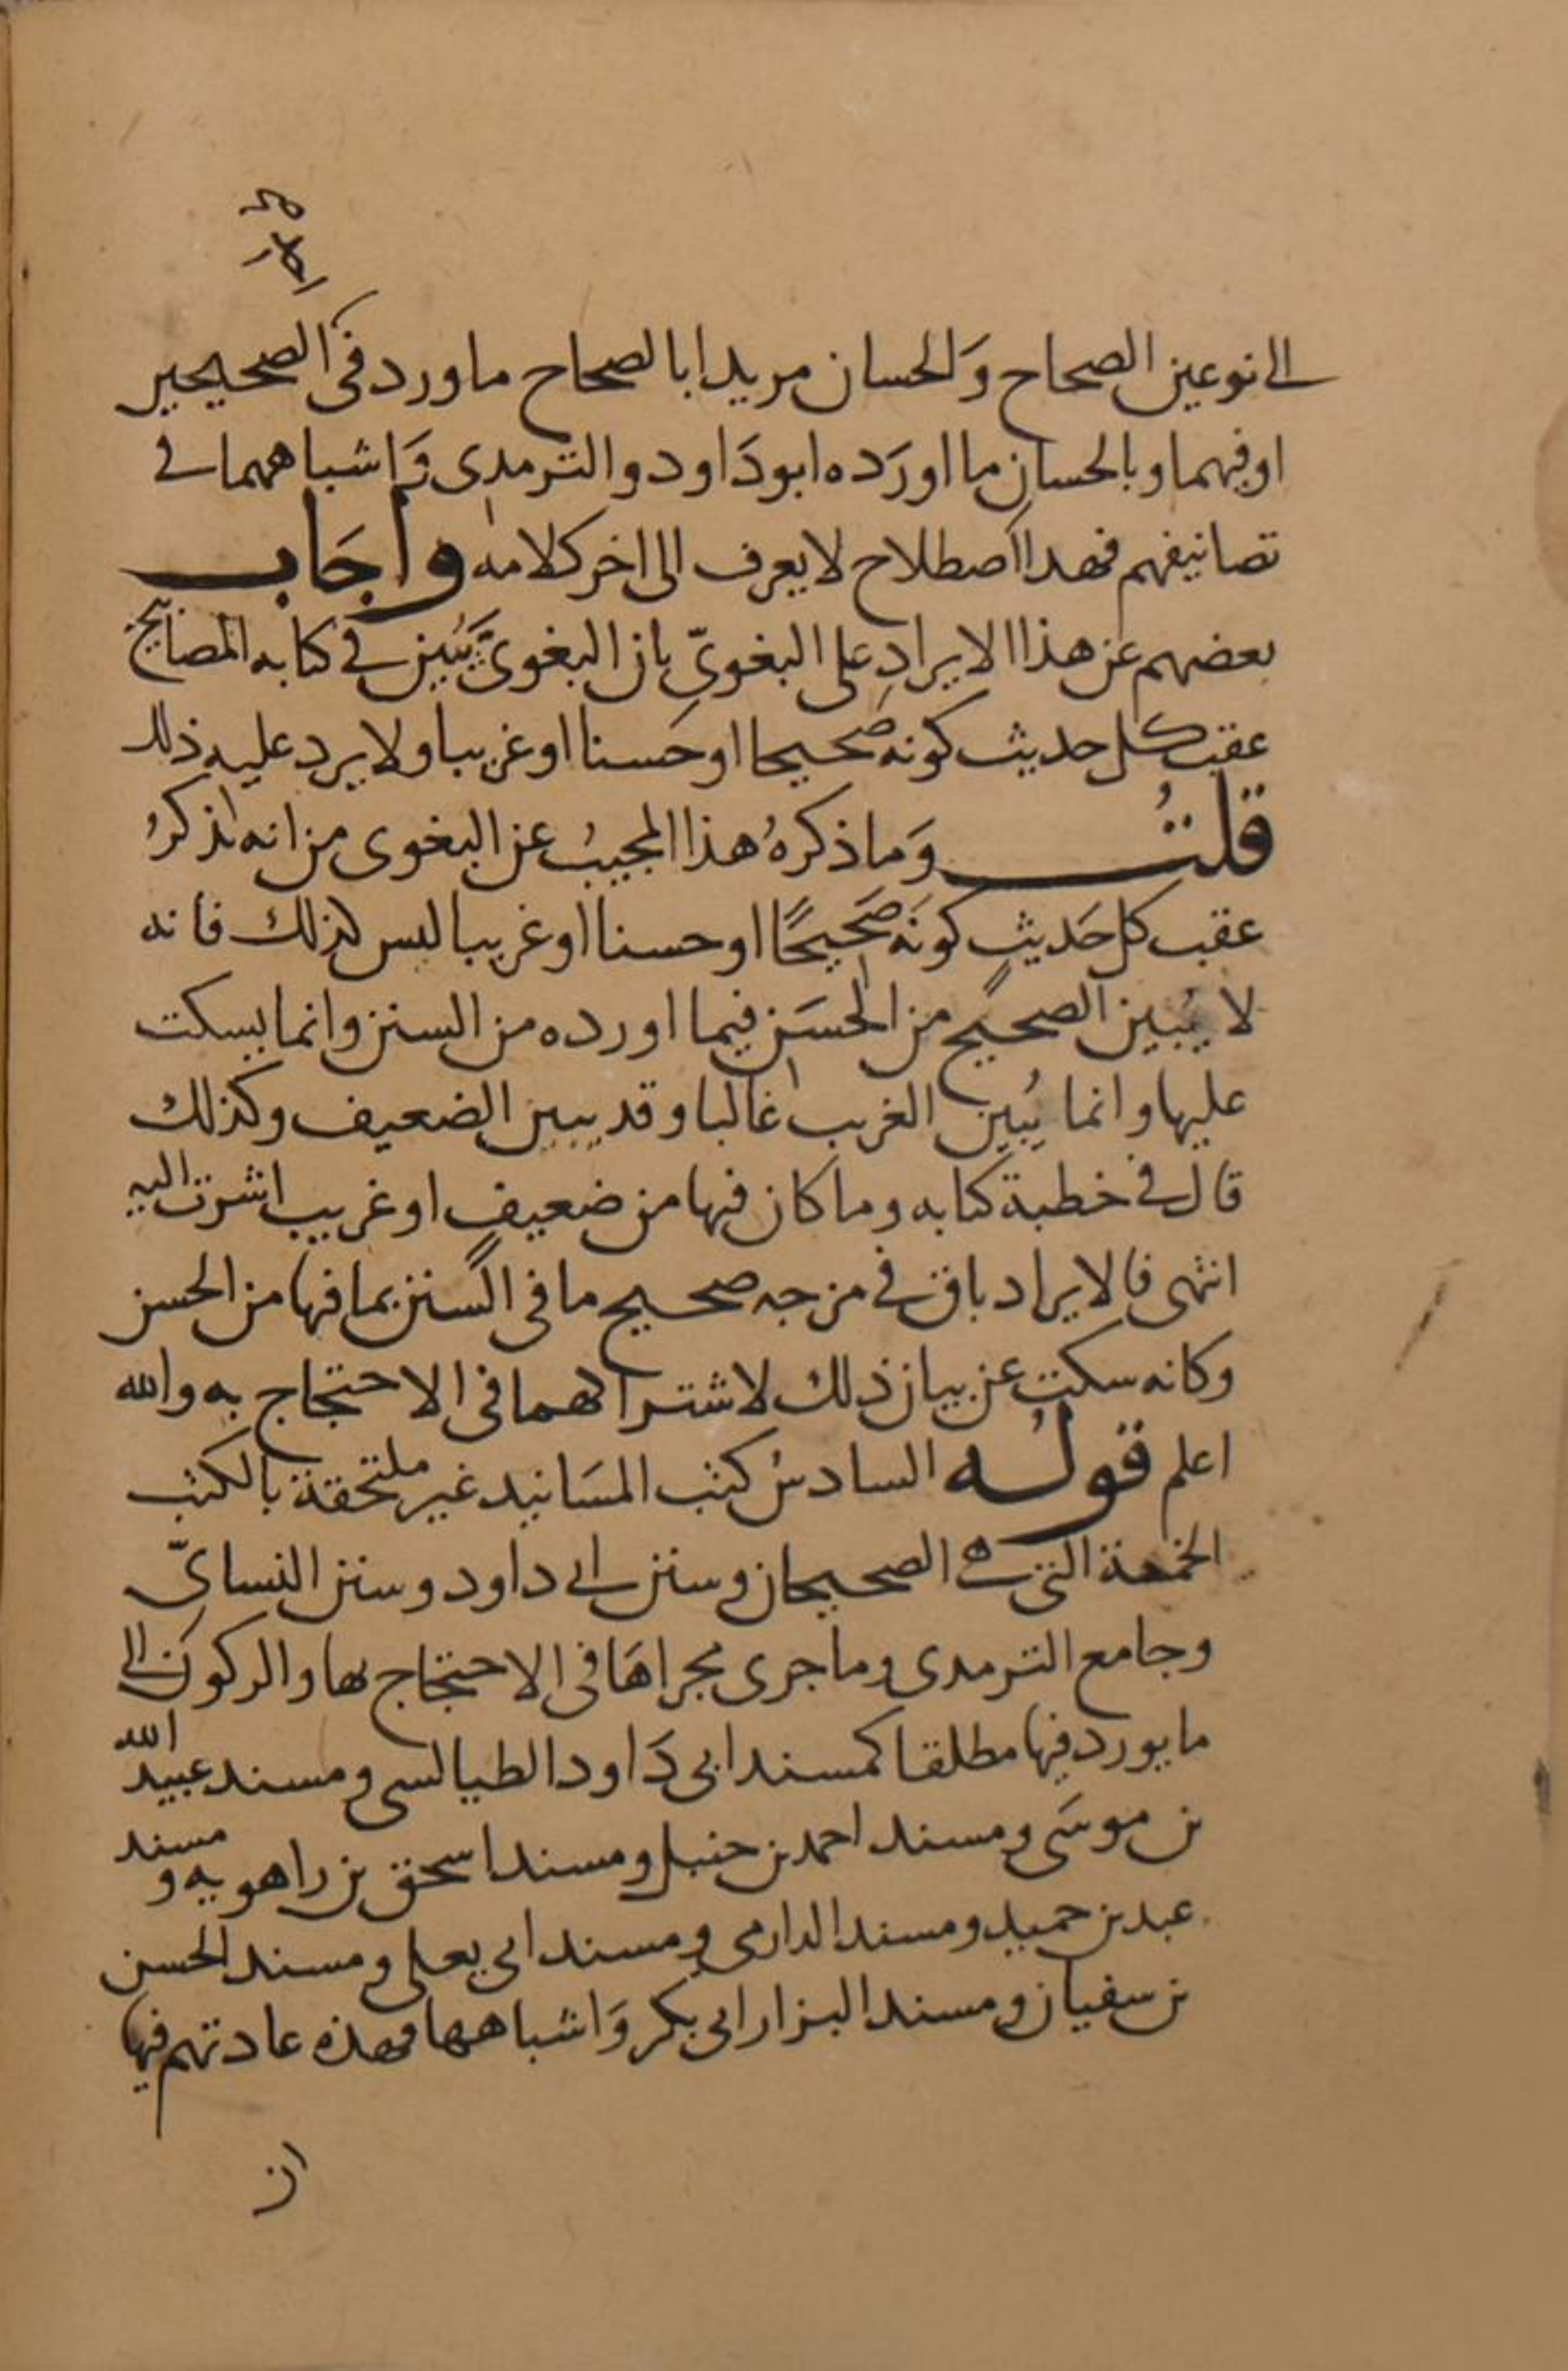 الى نوعين الصحاح وَالحسان مريدا بالصحاح ما ورد في الصحيحين
او فيهما وبالحسان ما اورَده ابو دَاود والترمدى وَاشباههما في
تصانيفهم فهدا اصطلاح لا يعرف الى اخر كلامه واجَاب
بعضهم عن هذا الايرادِ على البغويّ بان البغويَّ يبَيّن في كتابه المصابيح
عقب كل حديث كونه صحيحا او حَسنا او غريبا ولا يرد عليه ذلك
قلتُ وَما ذكرهُ هذا المجيبُ عن البغوى من انه يذكرُ
عقب كل حَديثٍ كونَه صَحيحًا او حسنا او غريبا ليس كذلك فانه
لا يُبين الصحيح من الحسَن فيما اورده من السنن وانما يسكت
عليها وانما يُبين الغريب غالبا وقد يبين الضعيف وكذلك
قال في خطبة كتابه وما كان فيها من ضعيفٍ او غريب اشرت اليه
انتهى فالايراد باق في مزجه صحيح ما في السنن بما فيها من الحسن
وكانه سكت عن بيان ذلك لاشتراكهما في الاحتجاج به والله
اعلم قولُه السادسُ كتب المسَانيد غير ملتحقة بالكتب
الخمسة التي هي الصحيحان وسنن ابي داود وسنن النسايّ
وجامع الترمدى وما جرى مجراهَا في الاحتجاج بها والركون الى
ما يورد فيها مطلقا كمسند ابي دَاود الطيالسى ومسند عبيد الله
بن موسَى ومسند احمد بن حنبل ومسند اسحق بن راهويه ومسند
عبد بن حميد ومسند الدارمى ومسند ابي يعلى ومسند الحسن
بن سفيان ومسند البزار ابي بكر وَاشباهها فهذه عادتهم فيها
ان